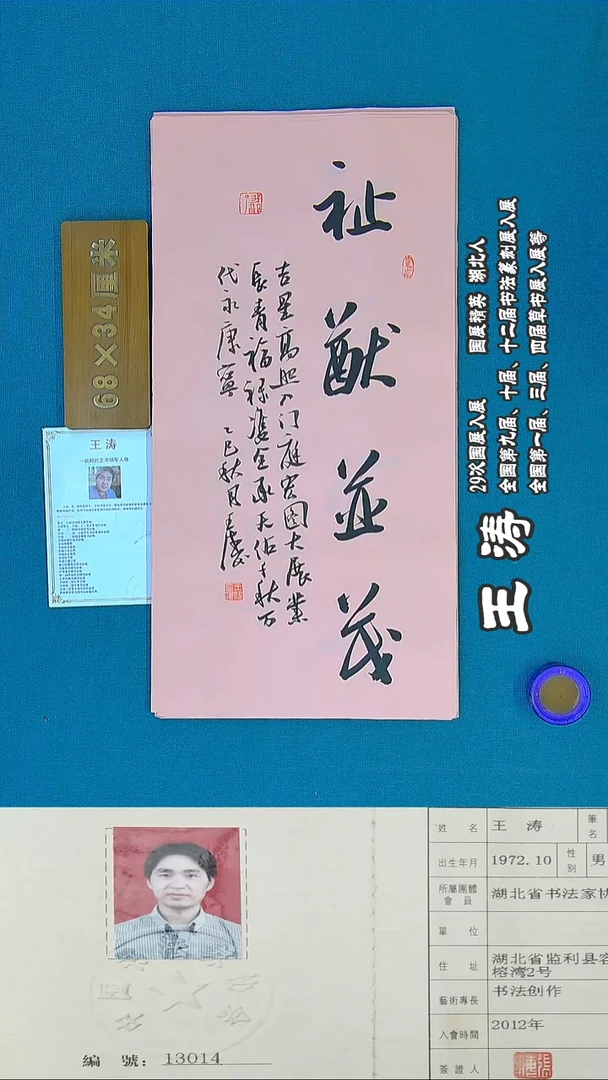 祉猷並茂
吉星高照入门庭宏图大展业
长青福禄双全承天佑千秋万
代永康宁 乙巳秋月王涛
68×34厘米
王涛
王涛
29次国展入展 国展精英 湖北人
全国第九届、十届、十二届书法篆刻展入展
全国第一届、三届、四届草书展入展等
姓名 王涛 筆名
出生年月 1972.10 性别 男
所屬團體會員 湖北省书法家协
單位
住址 湖北省监利县容
榕湾2号
藝術專長 书法创作
入會時間 2012年
簽證人
編號：13014